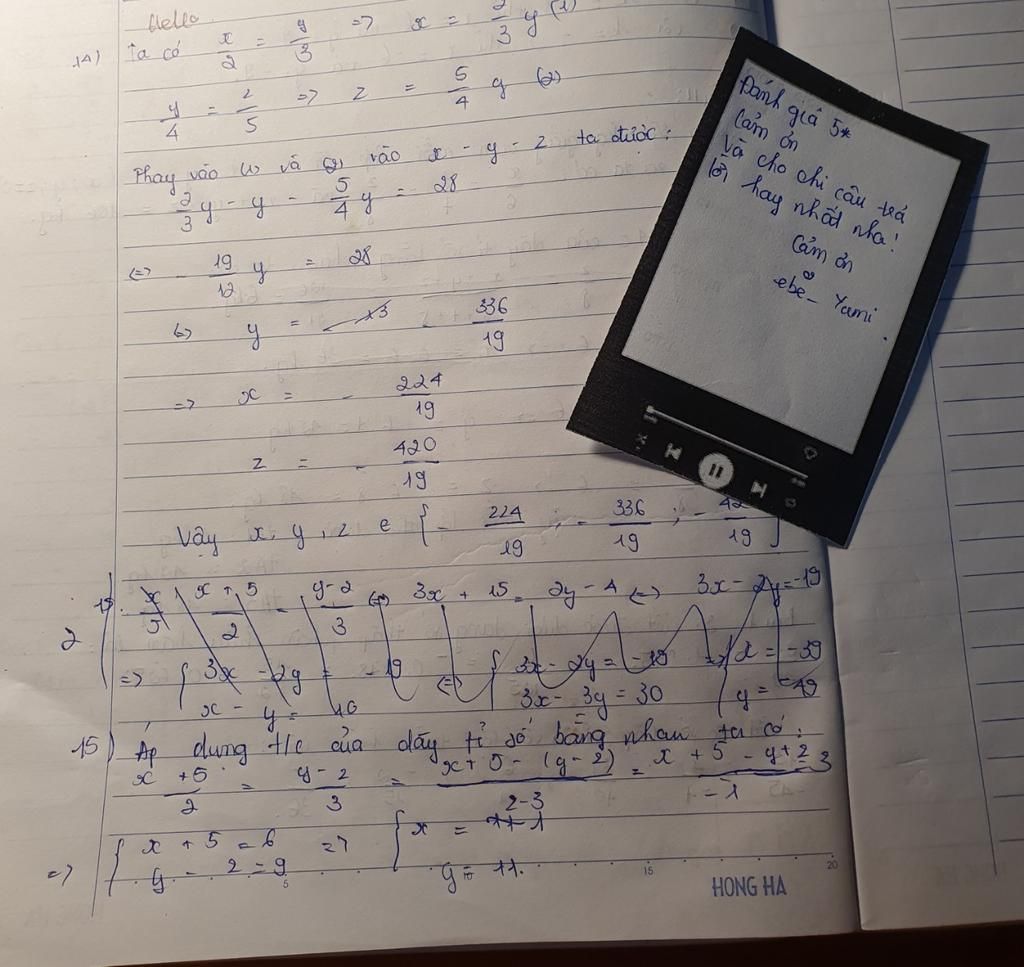 Hello
14) Ta có x/2 = y/3 => x = 2/3 y (1)
y/4 = z/5 => z = 5/4 y (2)
Thay vào (1) và (2) vào x - y - z ta được:
2/3 y - y - 5/4 y = 28
<=> - 19/12 y = 28
<=> y = - 336/19
=> x = - 224/19
z = - 420/19
Vậy x, y, z e { - 224/19 ; - 336/19 ; - 42 /19 }
x + 5 / 2 = y - 2 / 3 <=> 3x + 15 = 2y - 4 <=> 3x - 2y = -19
=> { 3x - 2y = - 19 <=> { 3x - 2y = - 19 => { x = - 39
x - y = 10 3x - 3y = 30 y = - 49
15) Áp dụng t/c của dãy tỉ số bằng nhau ta có:
x + 5 / 2 = y - 2 / 3 = x + 5 - (y - 2) / 2 - 3 = x + 5 - y + 2 / - 1
=> { x + 5 = 6 => { x = 1
y - 2 = 9 y = 11.
5 10 15 20
HONG HA
Đánh giá 5*
Cảm ơn
và cho chi câu trả
lời hay nhất nha!
Cảm ơn
ebe_ Yami